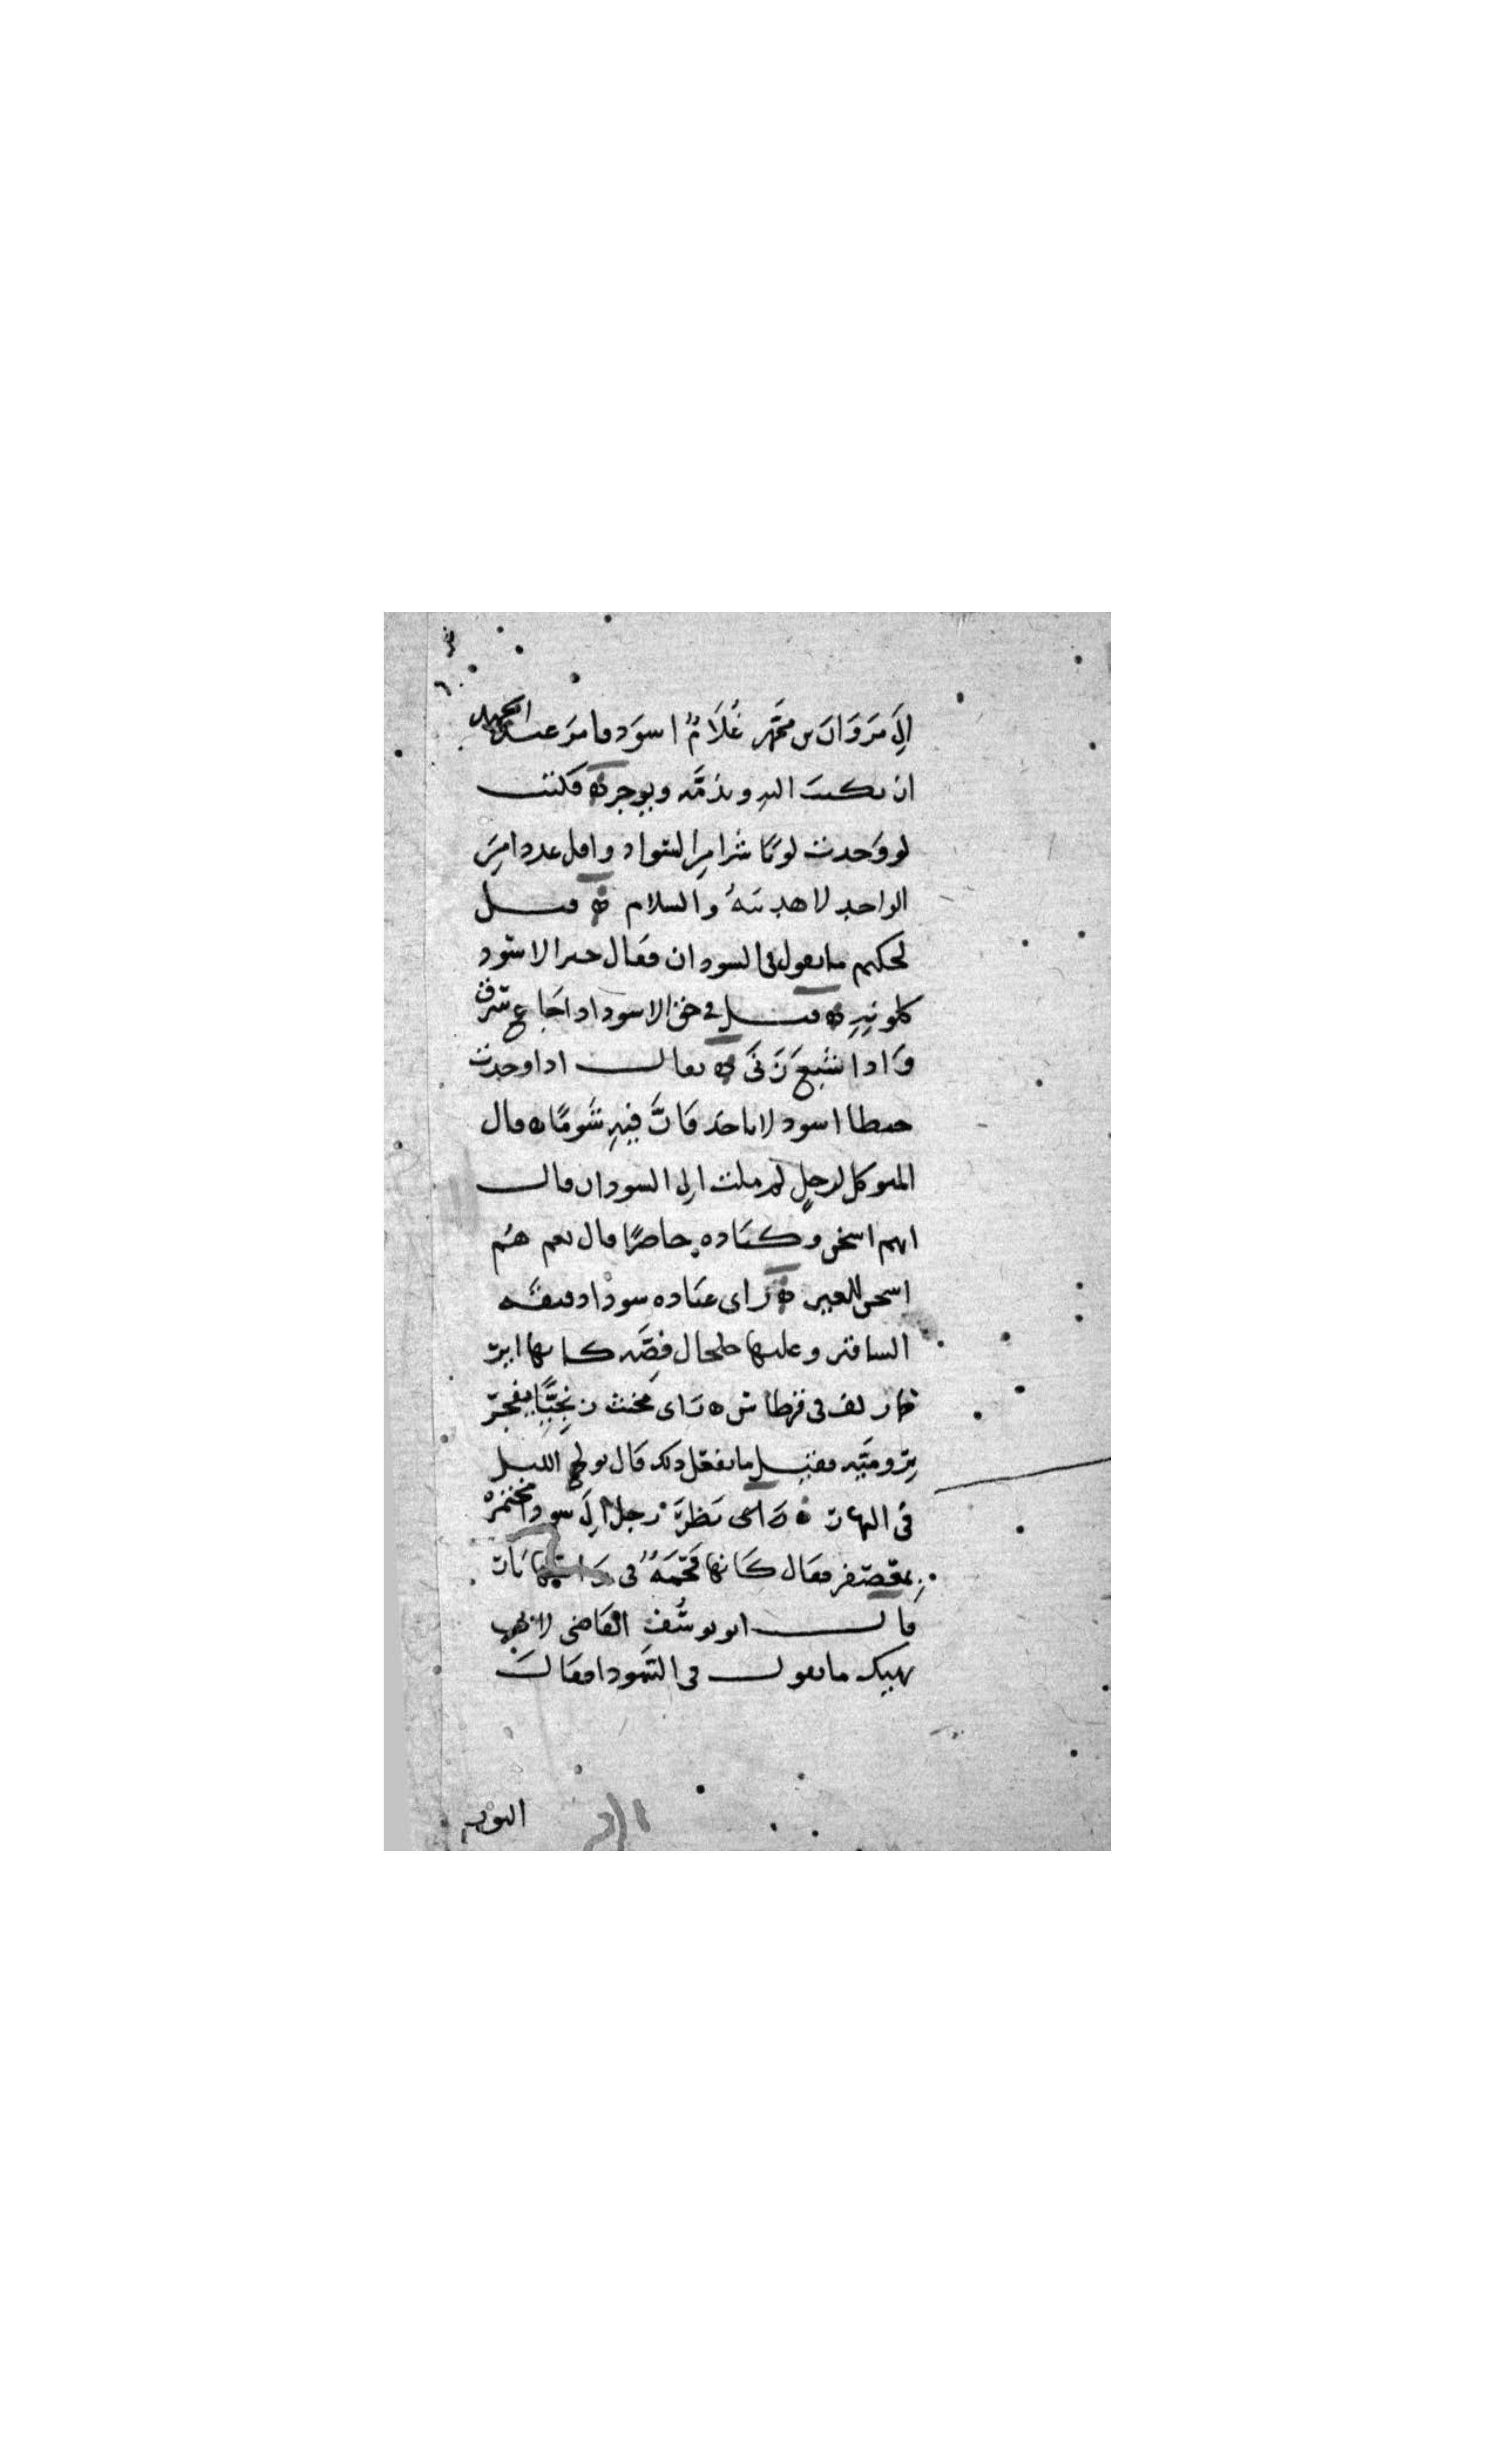 الى مروان بن محمد غلام اسود فامر عبد الحميد
ان يكتب اليه ويذمه ويوجز ه فكتب
لو وجدت لونا شرا من السواد واقل عددا من
الواحد لاهديته والسلام ه قيل
لحكيم ما يقول في السودان فقال خير الاسود
كلونه ه قيل في حق الاسود اذا جاع سرق
واذا شبع زنى ه يقال اذا وجدت
خيطا اسود لا تاخذ فان فيه شوما ه قال
المتوكل لرجل لم ملت الى السودان قال
انهم اسخن وكان عباده حاضرا قال نعم هم
اسخن للعين ه راى عباده سودا دقيقه
الساقين وعليها خلخال فضه كانها اير
لف في قرطاس ه راى مخنث زنجيا يفجر
بروميه فقيل ما يفعل ذلك قال يولج الليل
في النهار ه نظر رجل الى سودا مختمره
بمعصفر فقال كانها فحمه في راسها نار
قال ابو يوسف القاضي
ما يقول في السودا فقال
النور